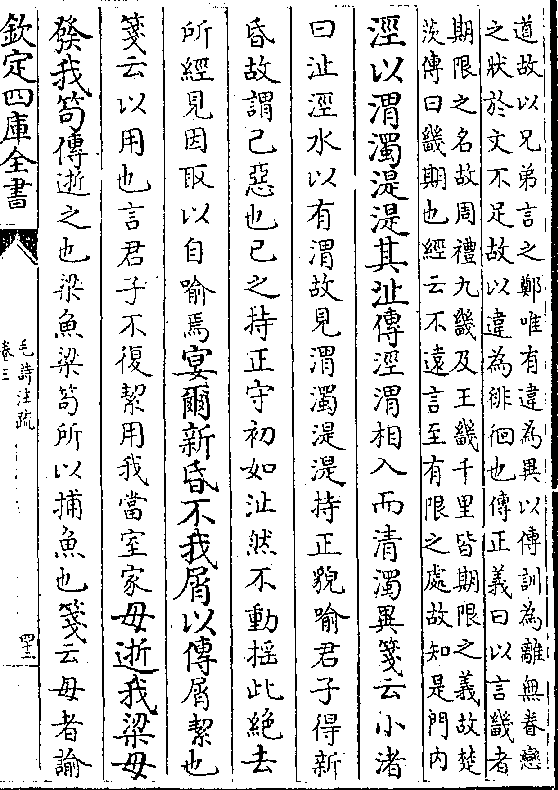 道故以兄弟言之鄭唯有違為異以傳訓為離無眷戀
之狀於文不足故以違為徘徊也傳正義曰以言畿者
期限之名故周禮九畿及王畿千里皆期限之義故楚
茨傳曰畿期也經云不遠言至有限之處故知是門内
涇以渭濁湜湜其沚傳涇渭相入而清濁異箋云小渚
曰沚涇水以有渭故見渭濁湜湜持正貌喻君子得新
昏故謂己惡也己之持正守初如沚然不動搖此絶去
所經見因取以自喻焉宴爾新昏不我屑以傳屑絜也
箋云以用也言君子不復絜用我當室家毋逝我梁毋
發我笱傳逝之也梁魚梁笱所以捕魚也箋云毋者諭
欽定四庫全書
毛詩注疏
卷三
四十二